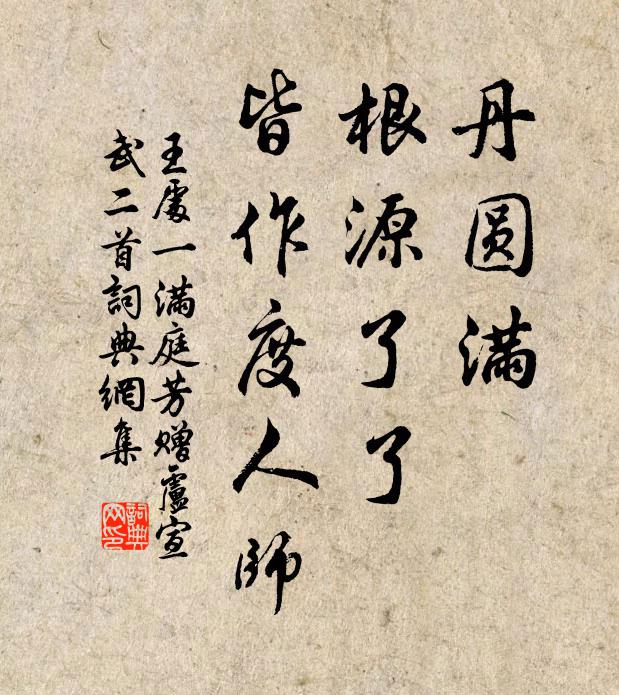 丹圆滿
根源了了
皆作度人師
王處一滿庭芳贈盧宣
武二首詞典網集
詞典
网印